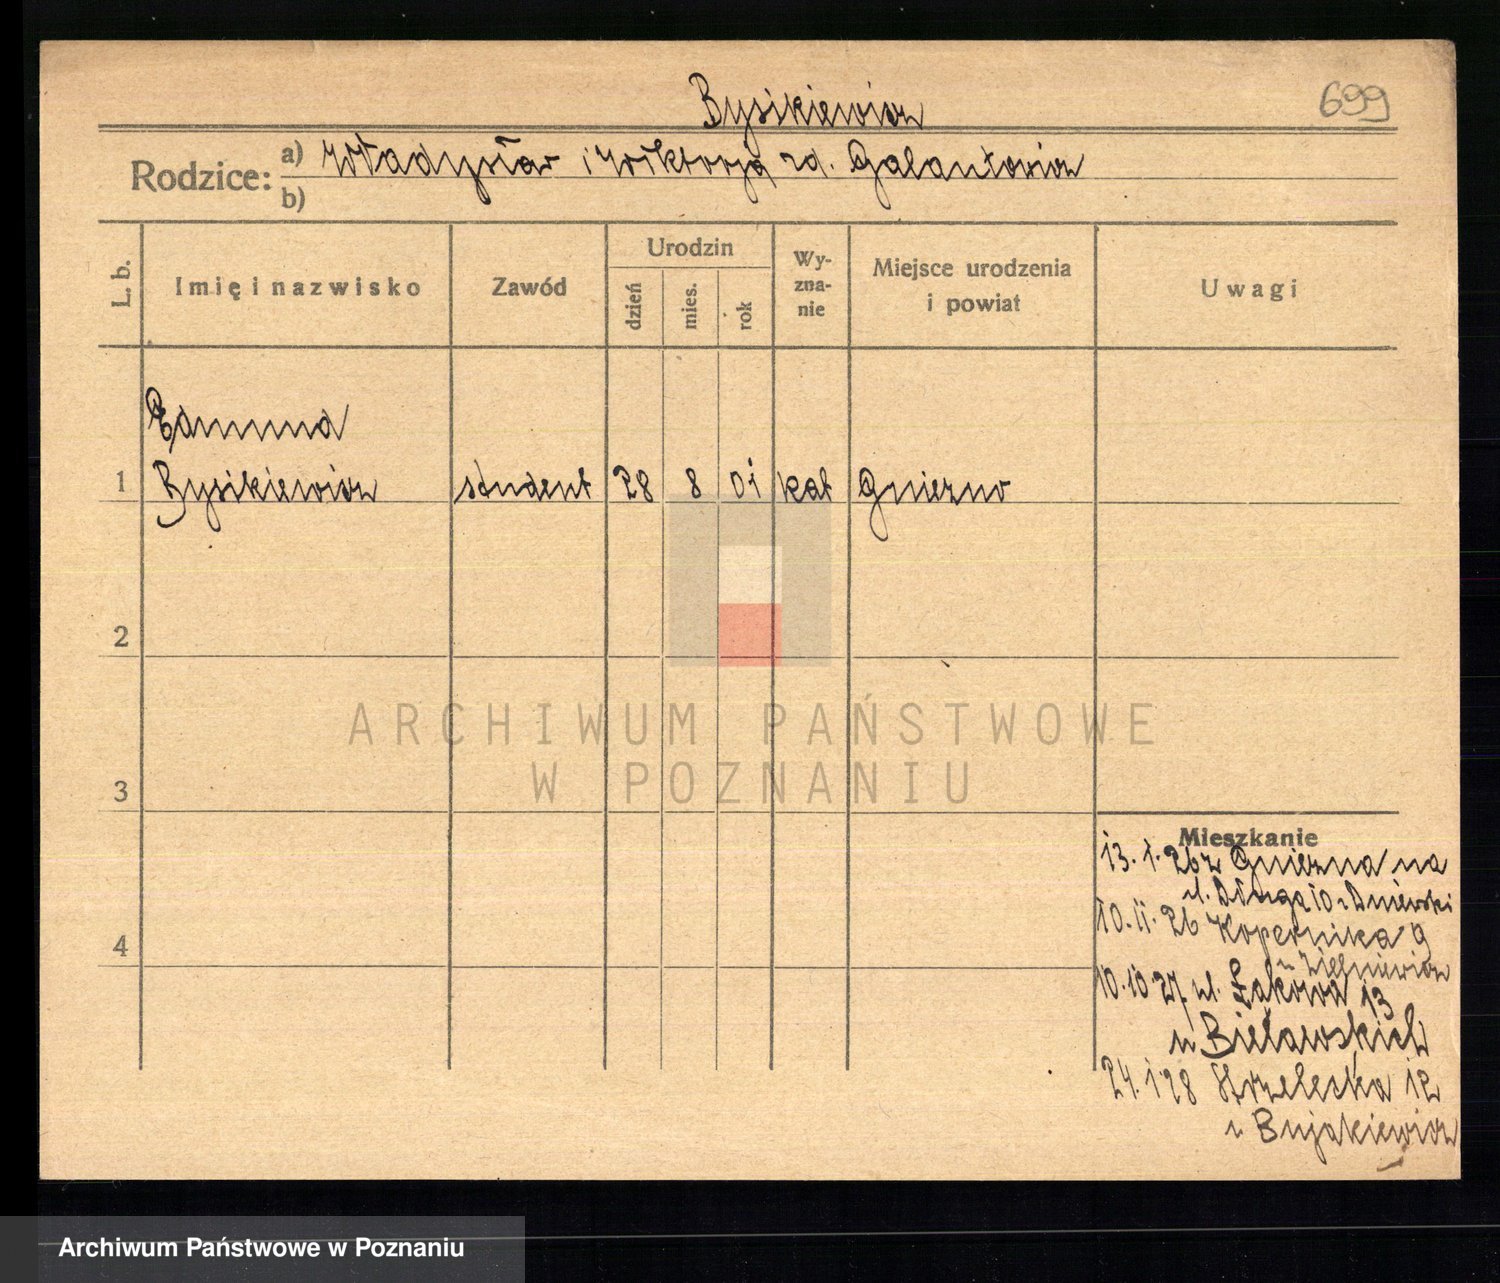 699
Bysikiewicz
Rodzice: a) Władysław i Wiktorja zd. Galantowicz
b)
L. b. Imię i nazwisko Zawód Urodzin dzień mies. rok Wy-zna-nie Miejsce urodzenia i powiat Uwagi
Edmund
1 Bysikiewicz student 28 8 01 kat Gniezno
2
3
4
Mieszkanie
13.1.26 z Gniezna na
ul. Długą 10
10.11.26 Kopernika 9
u
10.10 27 ul. Łąkowa 13
u Bielawskich
24.1 28 Strzelecka 12
u Bujakiewicz
ARCHIWUM PAŃSTWOWE
W POZNANIU
Archiwum Państwowe w Poznaniu